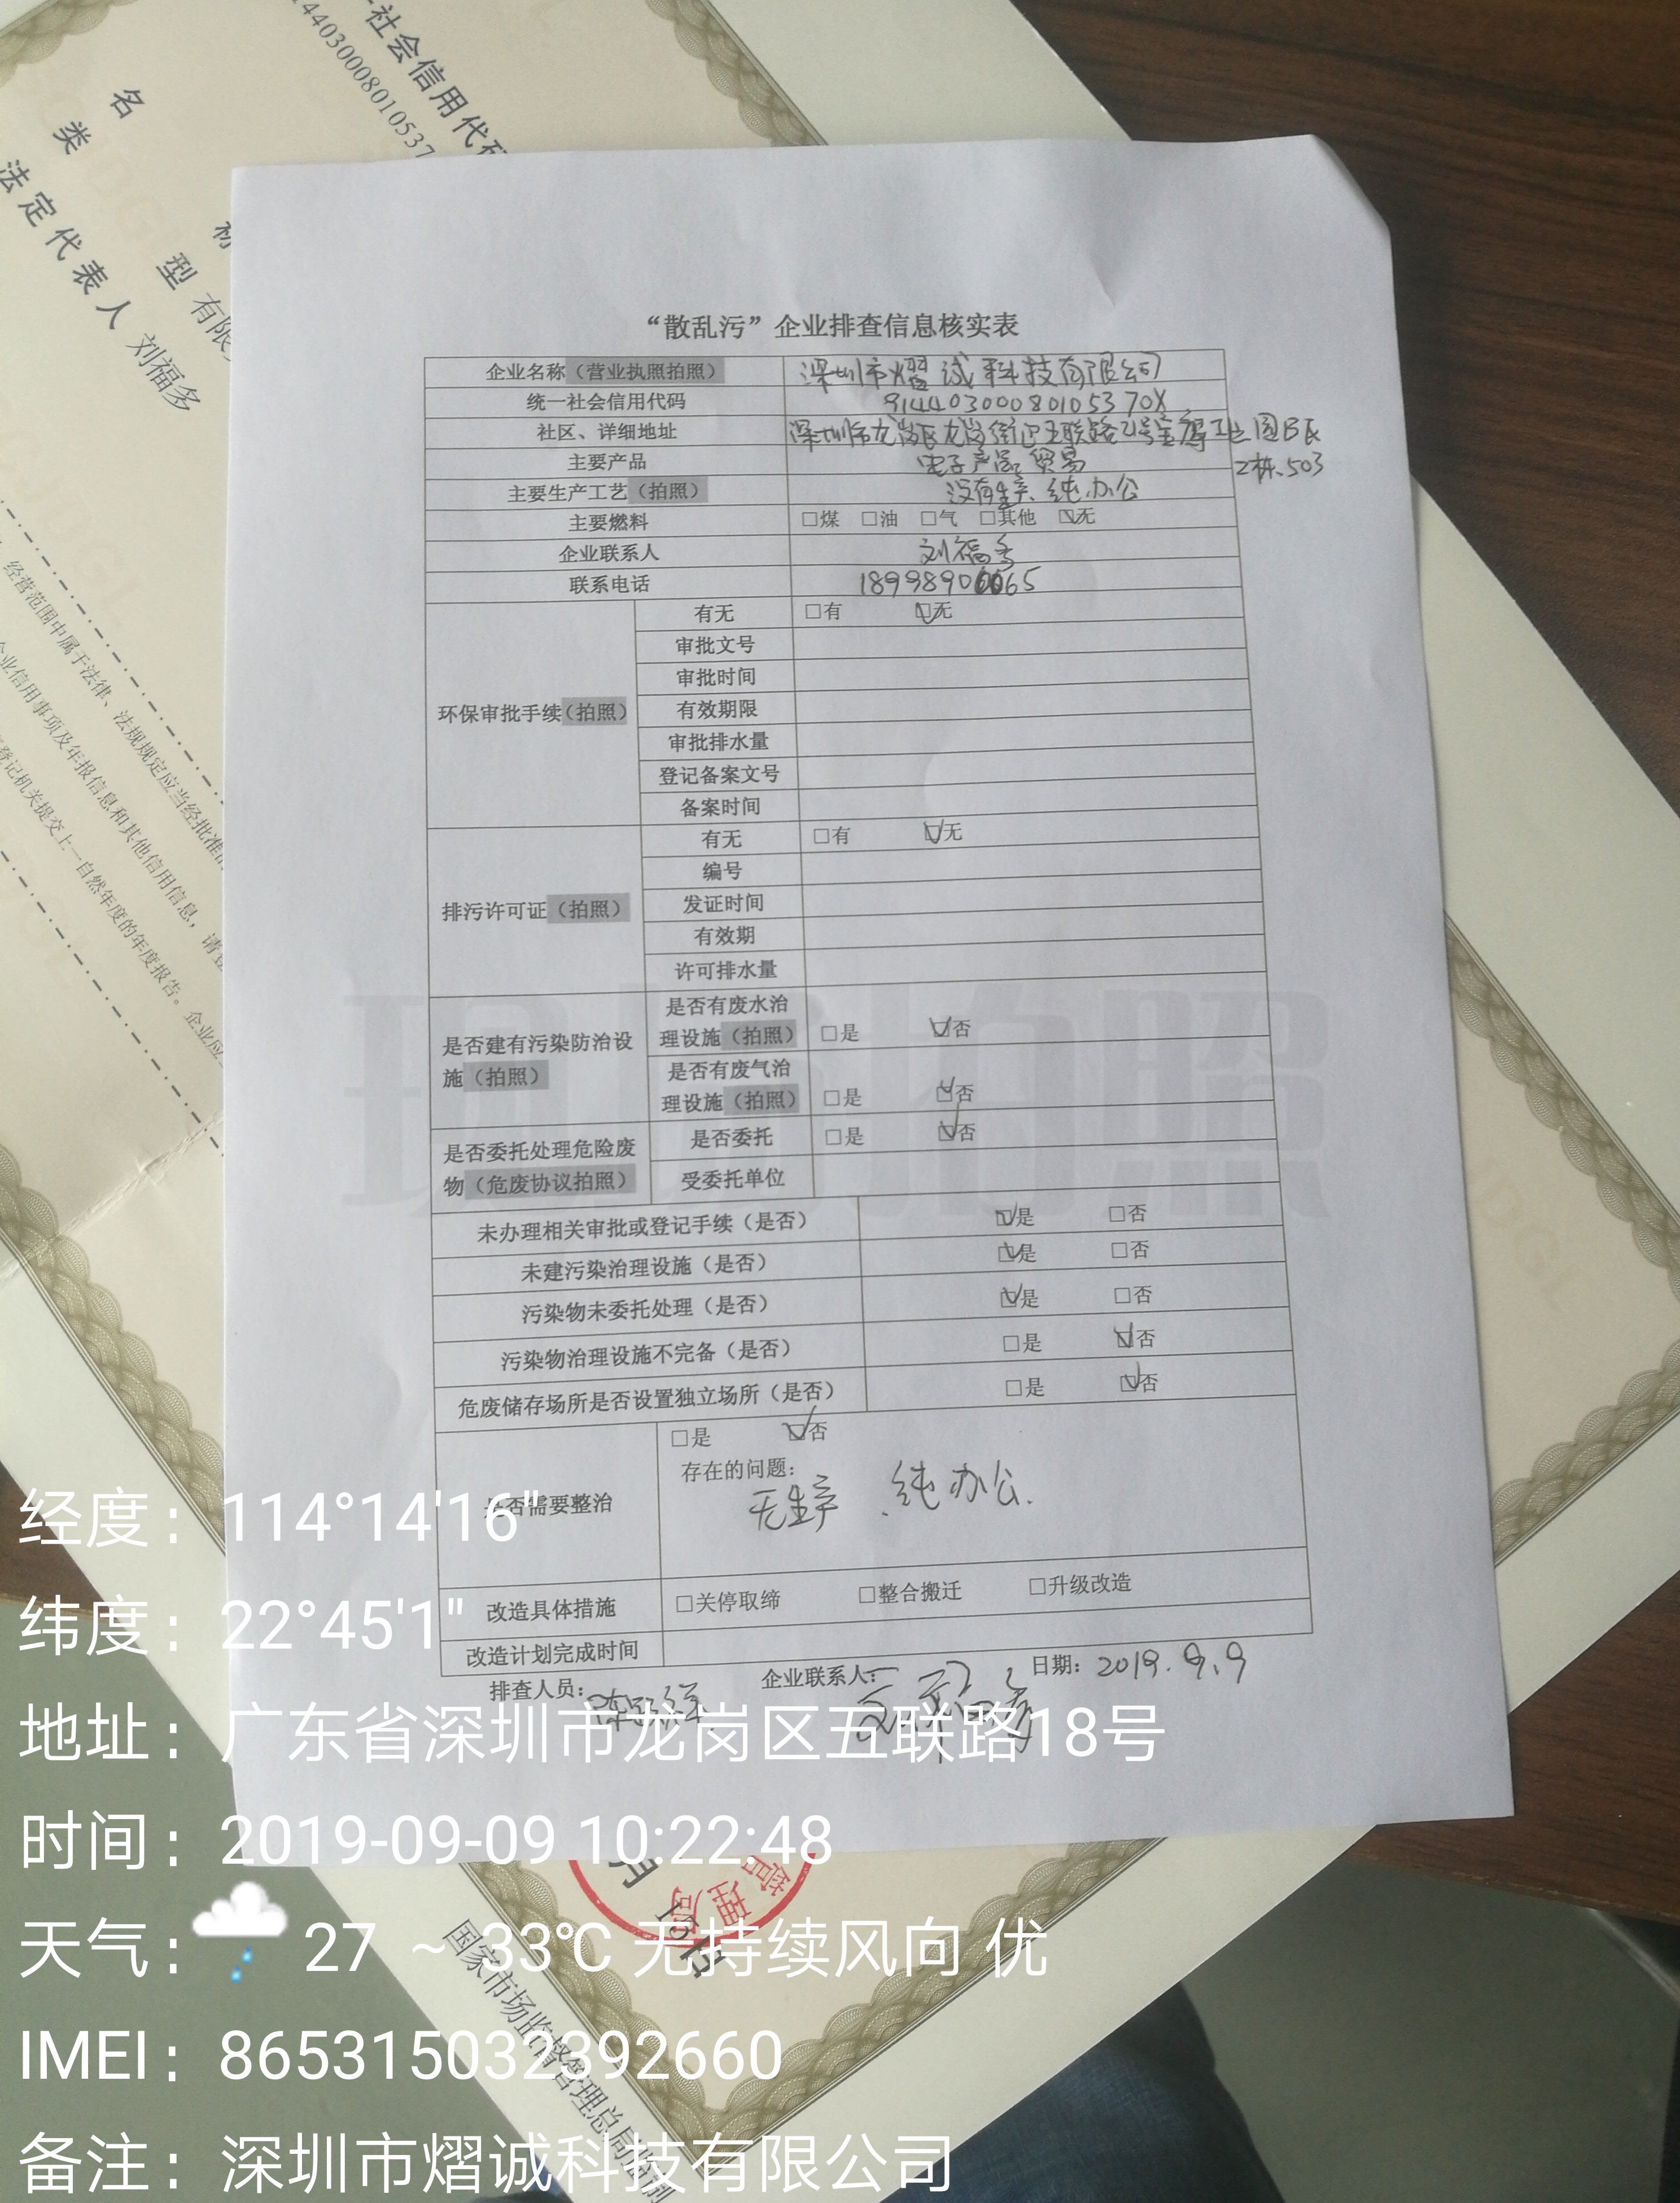 一社会信用代码
914403000801053 7
名 称
类 型 有限
法定代表人 刘福多
经营范围中属于法律、法规规定应当经批准
企业信用事项及年报信息和其他信用信息，请登
登记机关提交上一自然年度的年度报告。企业应
“散乱污”企业排查信息核实表
企业名称（营业执照拍照） 深圳市熠诚科技有限公司
统一社会信用代码 91440300080105370X
社区、详细地址 深圳市龙岗区龙岗街道五联路21号宝鹰工业园B区
主要产品 电子产品贸易 2栋.503
主要生产工艺（拍照） 没有生产、纯办公
主要燃料 □煤 □油 □气 □其他 ☑无
企业联系人 刘福多
联系电话 18998900065
环保审批手续（拍照） 有无 □有 ☑无
审批文号
审批时间
有效期限
审批排水量
登记备案文号
备案时间
排污许可证（拍照） 有无 □有 ☑无
编号
发证时间
有效期
许可排水量
是否建有污染防治设施（拍照） 是否有废水治理设施（拍照） □是 ☑否
是否有废气治理设施（拍照） □是 ☑否
是否委托处理危险废物（危废协议拍照） 是否委托 □是 ☑否
受委托单位
未办理相关审批或登记手续（是否） ☑是 □否
未建污染治理设施（是否） ☑是 □否
污染物未委托处理（是否） ☑是 □否
污染物治理设施不完备（是否） □是 ☑否
危废储存场所是否设置独立场所（是否） □是 ☑否
是否需要整治 □是 ☑否
存在的问题：
无生产、纯办公.
改造具体措施 □关停取缔 □整合搬迁 □升级改造
改造计划完成时间
排查人员： 企业联系人： 刘福多 日期：2019.9.9
现场拍照
经度：114°14'16"
纬度：22°45'1"
地址：广东省深圳市龙岗区五联路18号
时间：2019-09-09 10:22:48
天气： 27 ~ 33℃ 无持续风向 优
IMEI：865315032392660
备注：深圳市熠诚科技有限公司
国家市场监督管理总局监制